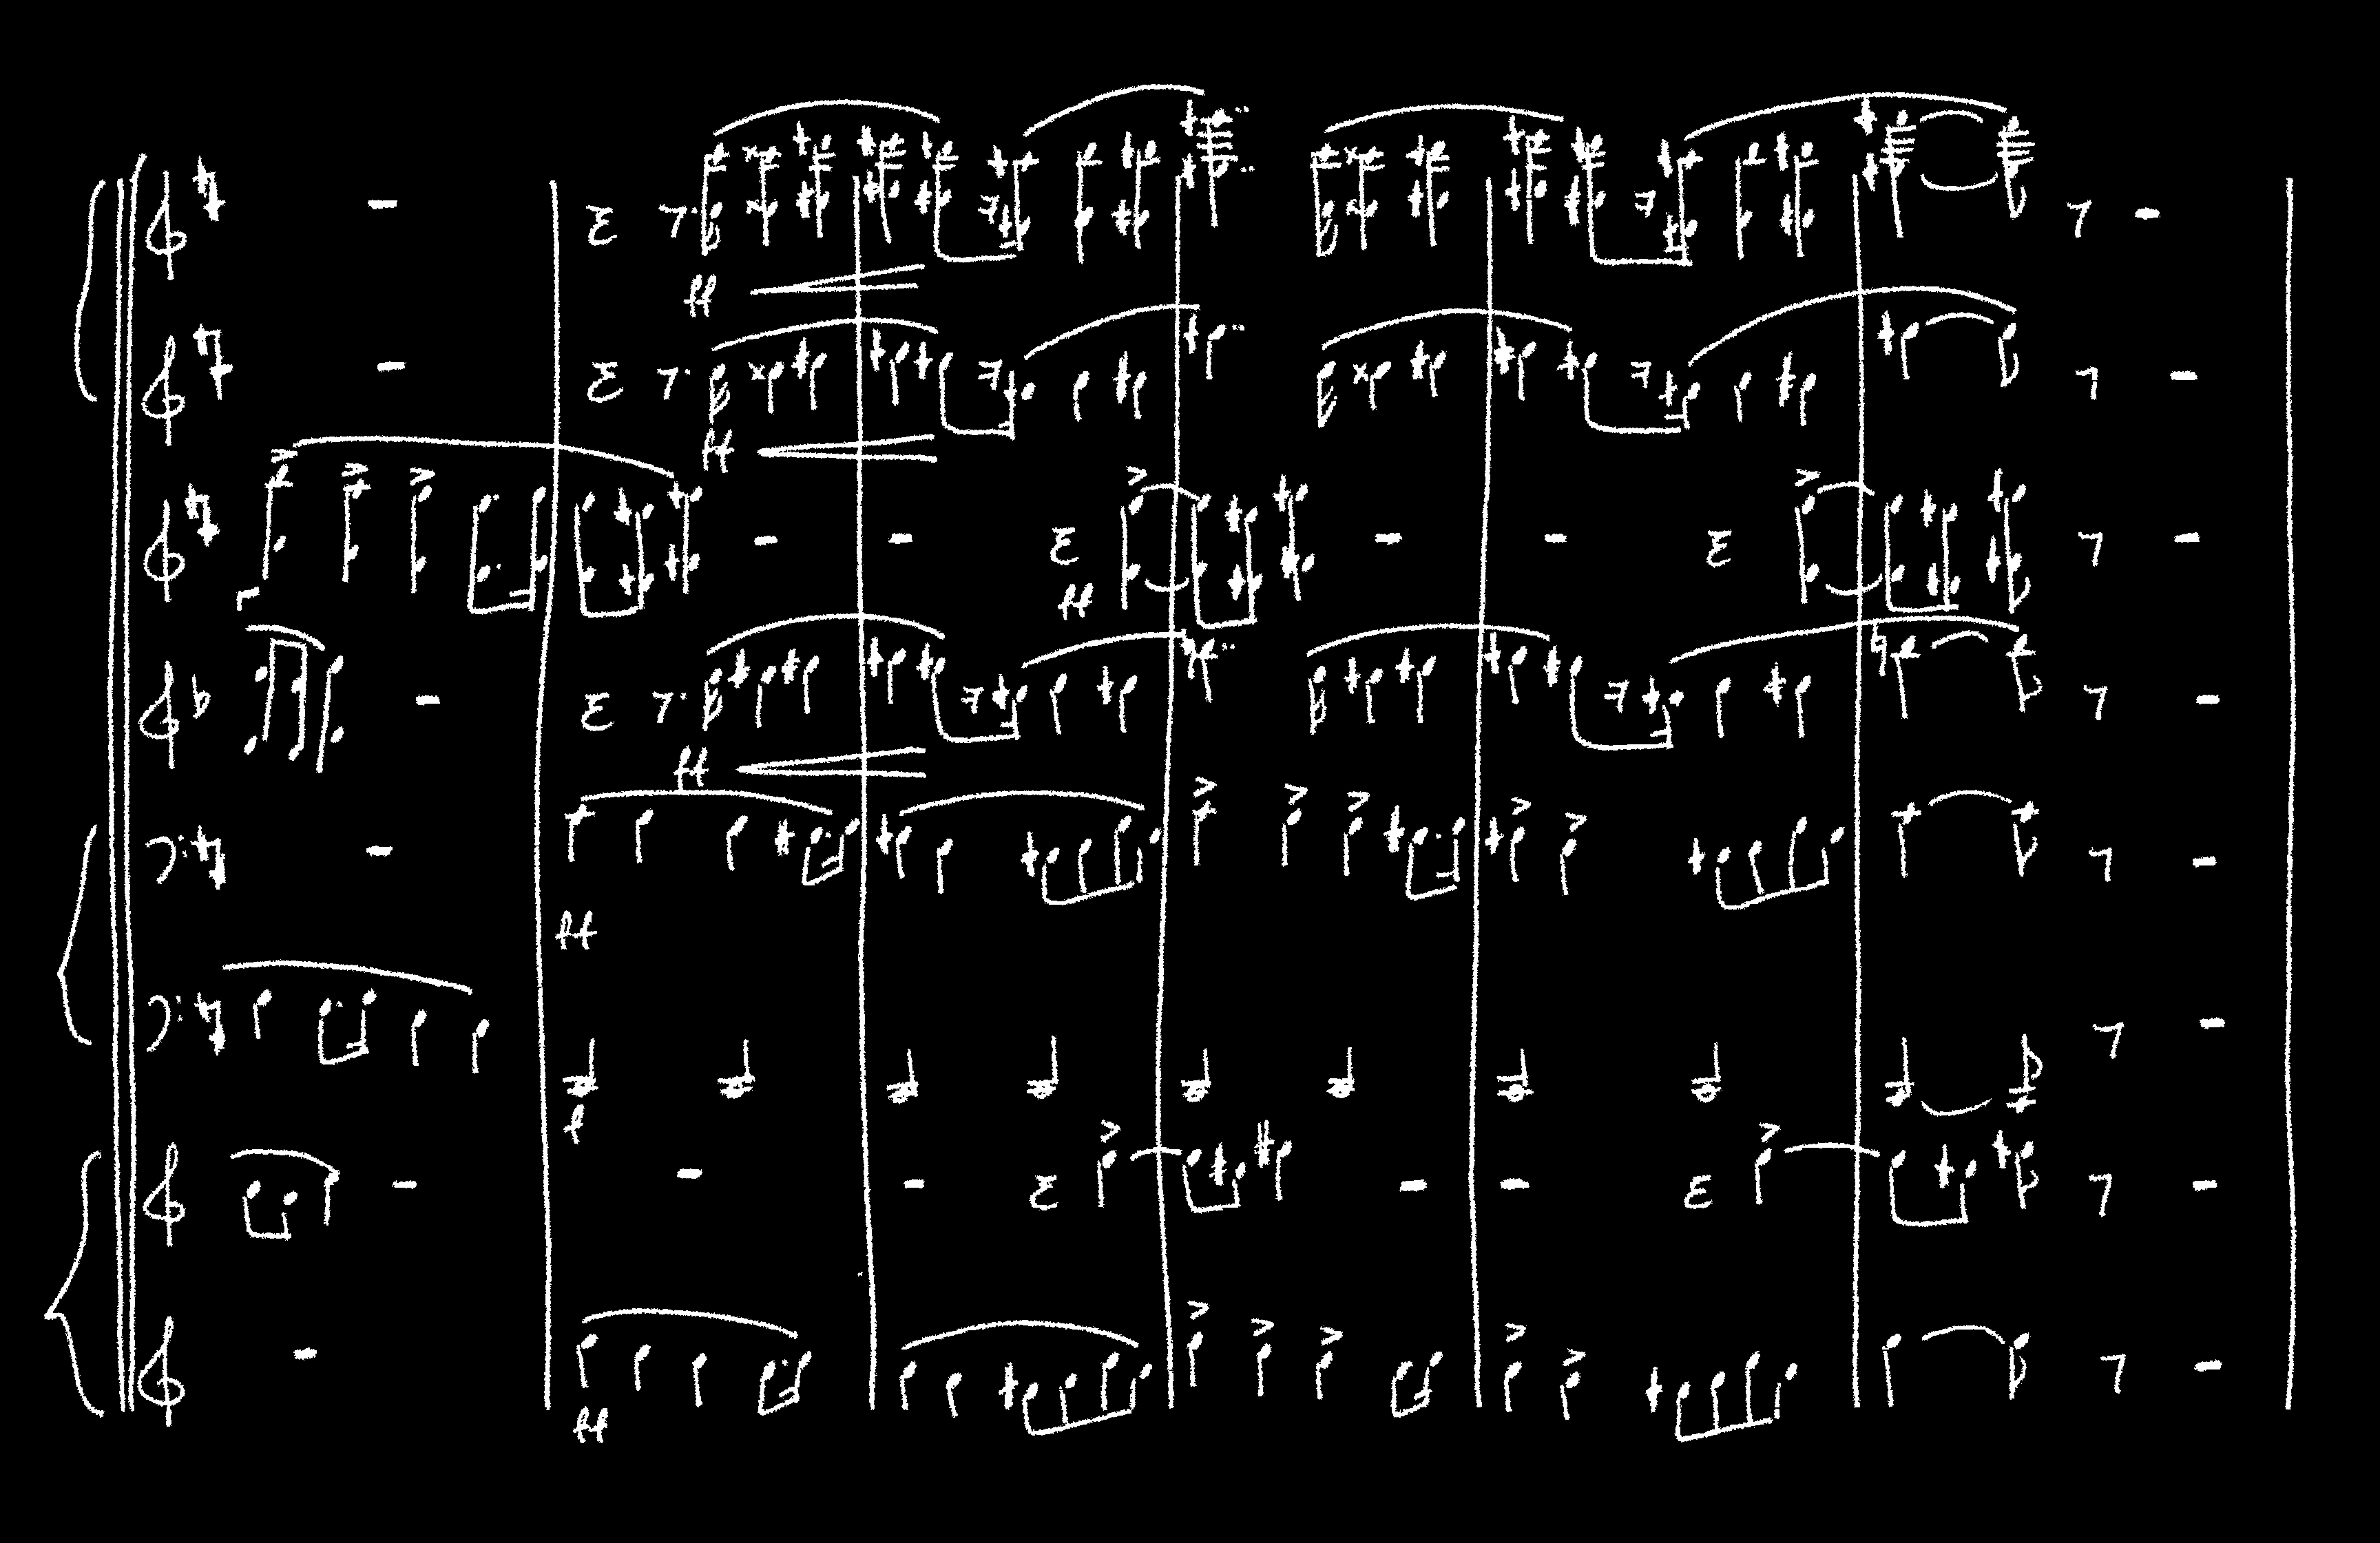 ff
ff
ff
ff
ff
f
ff